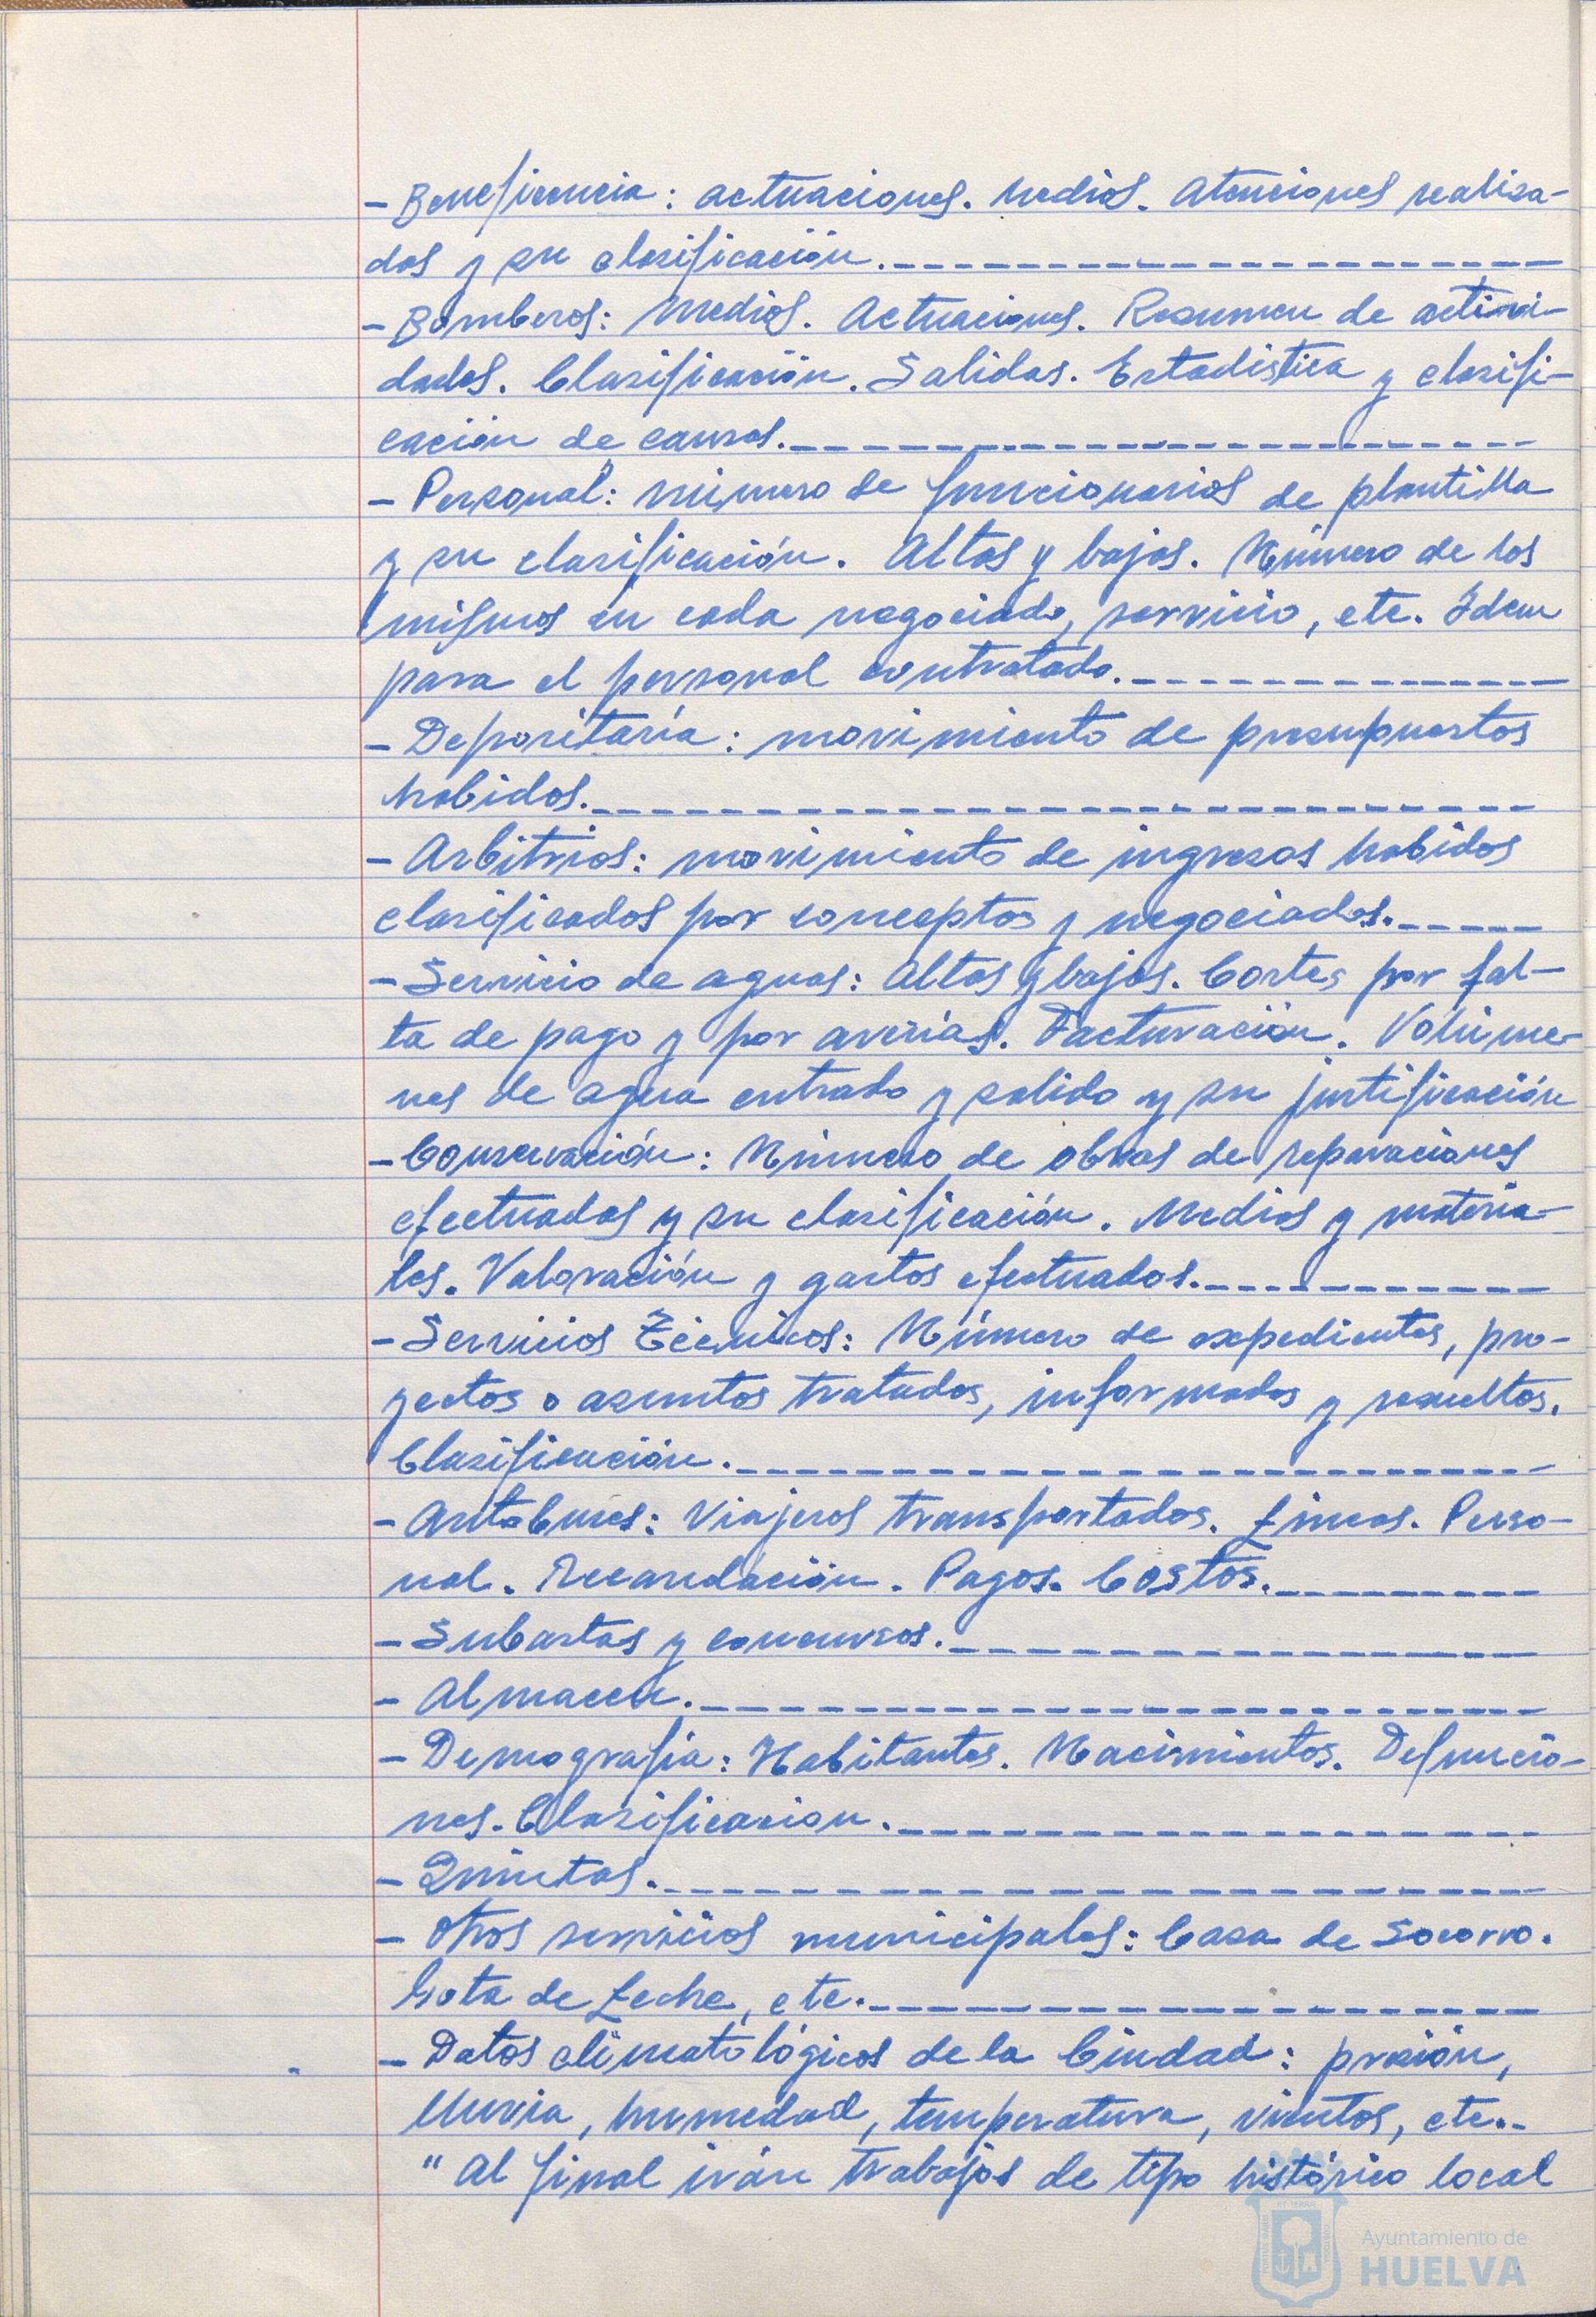 - Beneficencia: actuaciones. Medios. Atenciones realiza-
das y su clasificación.____________
- Bomberos: Medios. Actuaciones. Resumen de activi-
dades. Clasificación. Salidas. Estadística y clasifi-
cación de causas.____________
- Personal: número de funcionarios de plantilla
y su clasificación. Altas y bajas. Número de los
mismos en cada negociado, servicio, etc. Idem
para el personal contratado.____________
- Depositaría: movimiento de presupuestos
habidos.____________
- Arbitrios: movimiento de ingresos habidos
clasificados por conceptos y negociados.______
- Servicio de aguas: Altas y bajas. Cortes por fal-
ta de pago y por averías. Facturación. Volúme-
nes de agua entrado y salido y su justificación
- Conservación: Número de obras de reparaciones
efectuadas y su clasificación. Medios y materia-
les. Valoración y gastos efectuados.____________
- Servicios Técnicos: Número de expedientes, pro-
yectos o asuntos tratados, informados y resueltos.
Clasificación.____________
- Autobuses: Viajeros transportados. Líneas. Perso-
nal. Recaudación. Pagos. Costos.____________
- Subastas y concursos.____________
- Almacen.____________
- Demografía: Habitantes. Nacimientos. Defuncio-
nes. Clasificacion.____________
- Quintas.____________
- Otros servicios municipales: Casa de Socorro.
Gota de Leche, etc.____________
- Datos climatológicos de la Ciudad: presión,
lluvia, humedad, temperatura, vientos, etc.-
" Al final irán trabajos de tipo histórico local
Ayuntamiento de
HUELVA